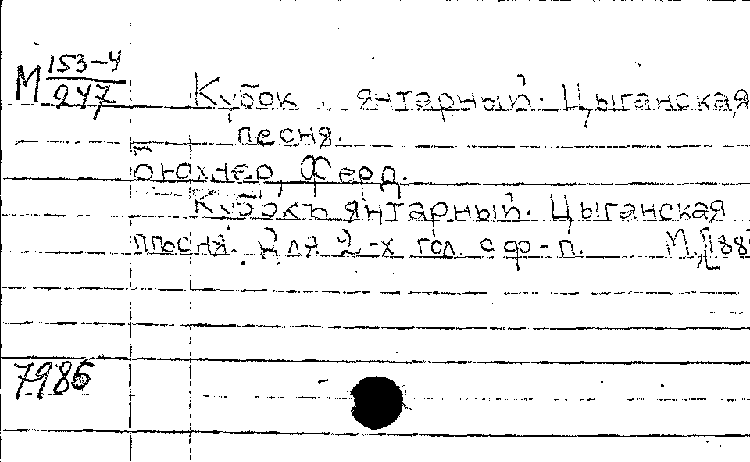 М 153-4/247
Кубок янтарный. Цыганская
песня.
Бюхнер, Ферд.
Кубокъ янтарный. Цыганская
пѣсня. Для 2-х гол. с ф-п. М., [188
7986